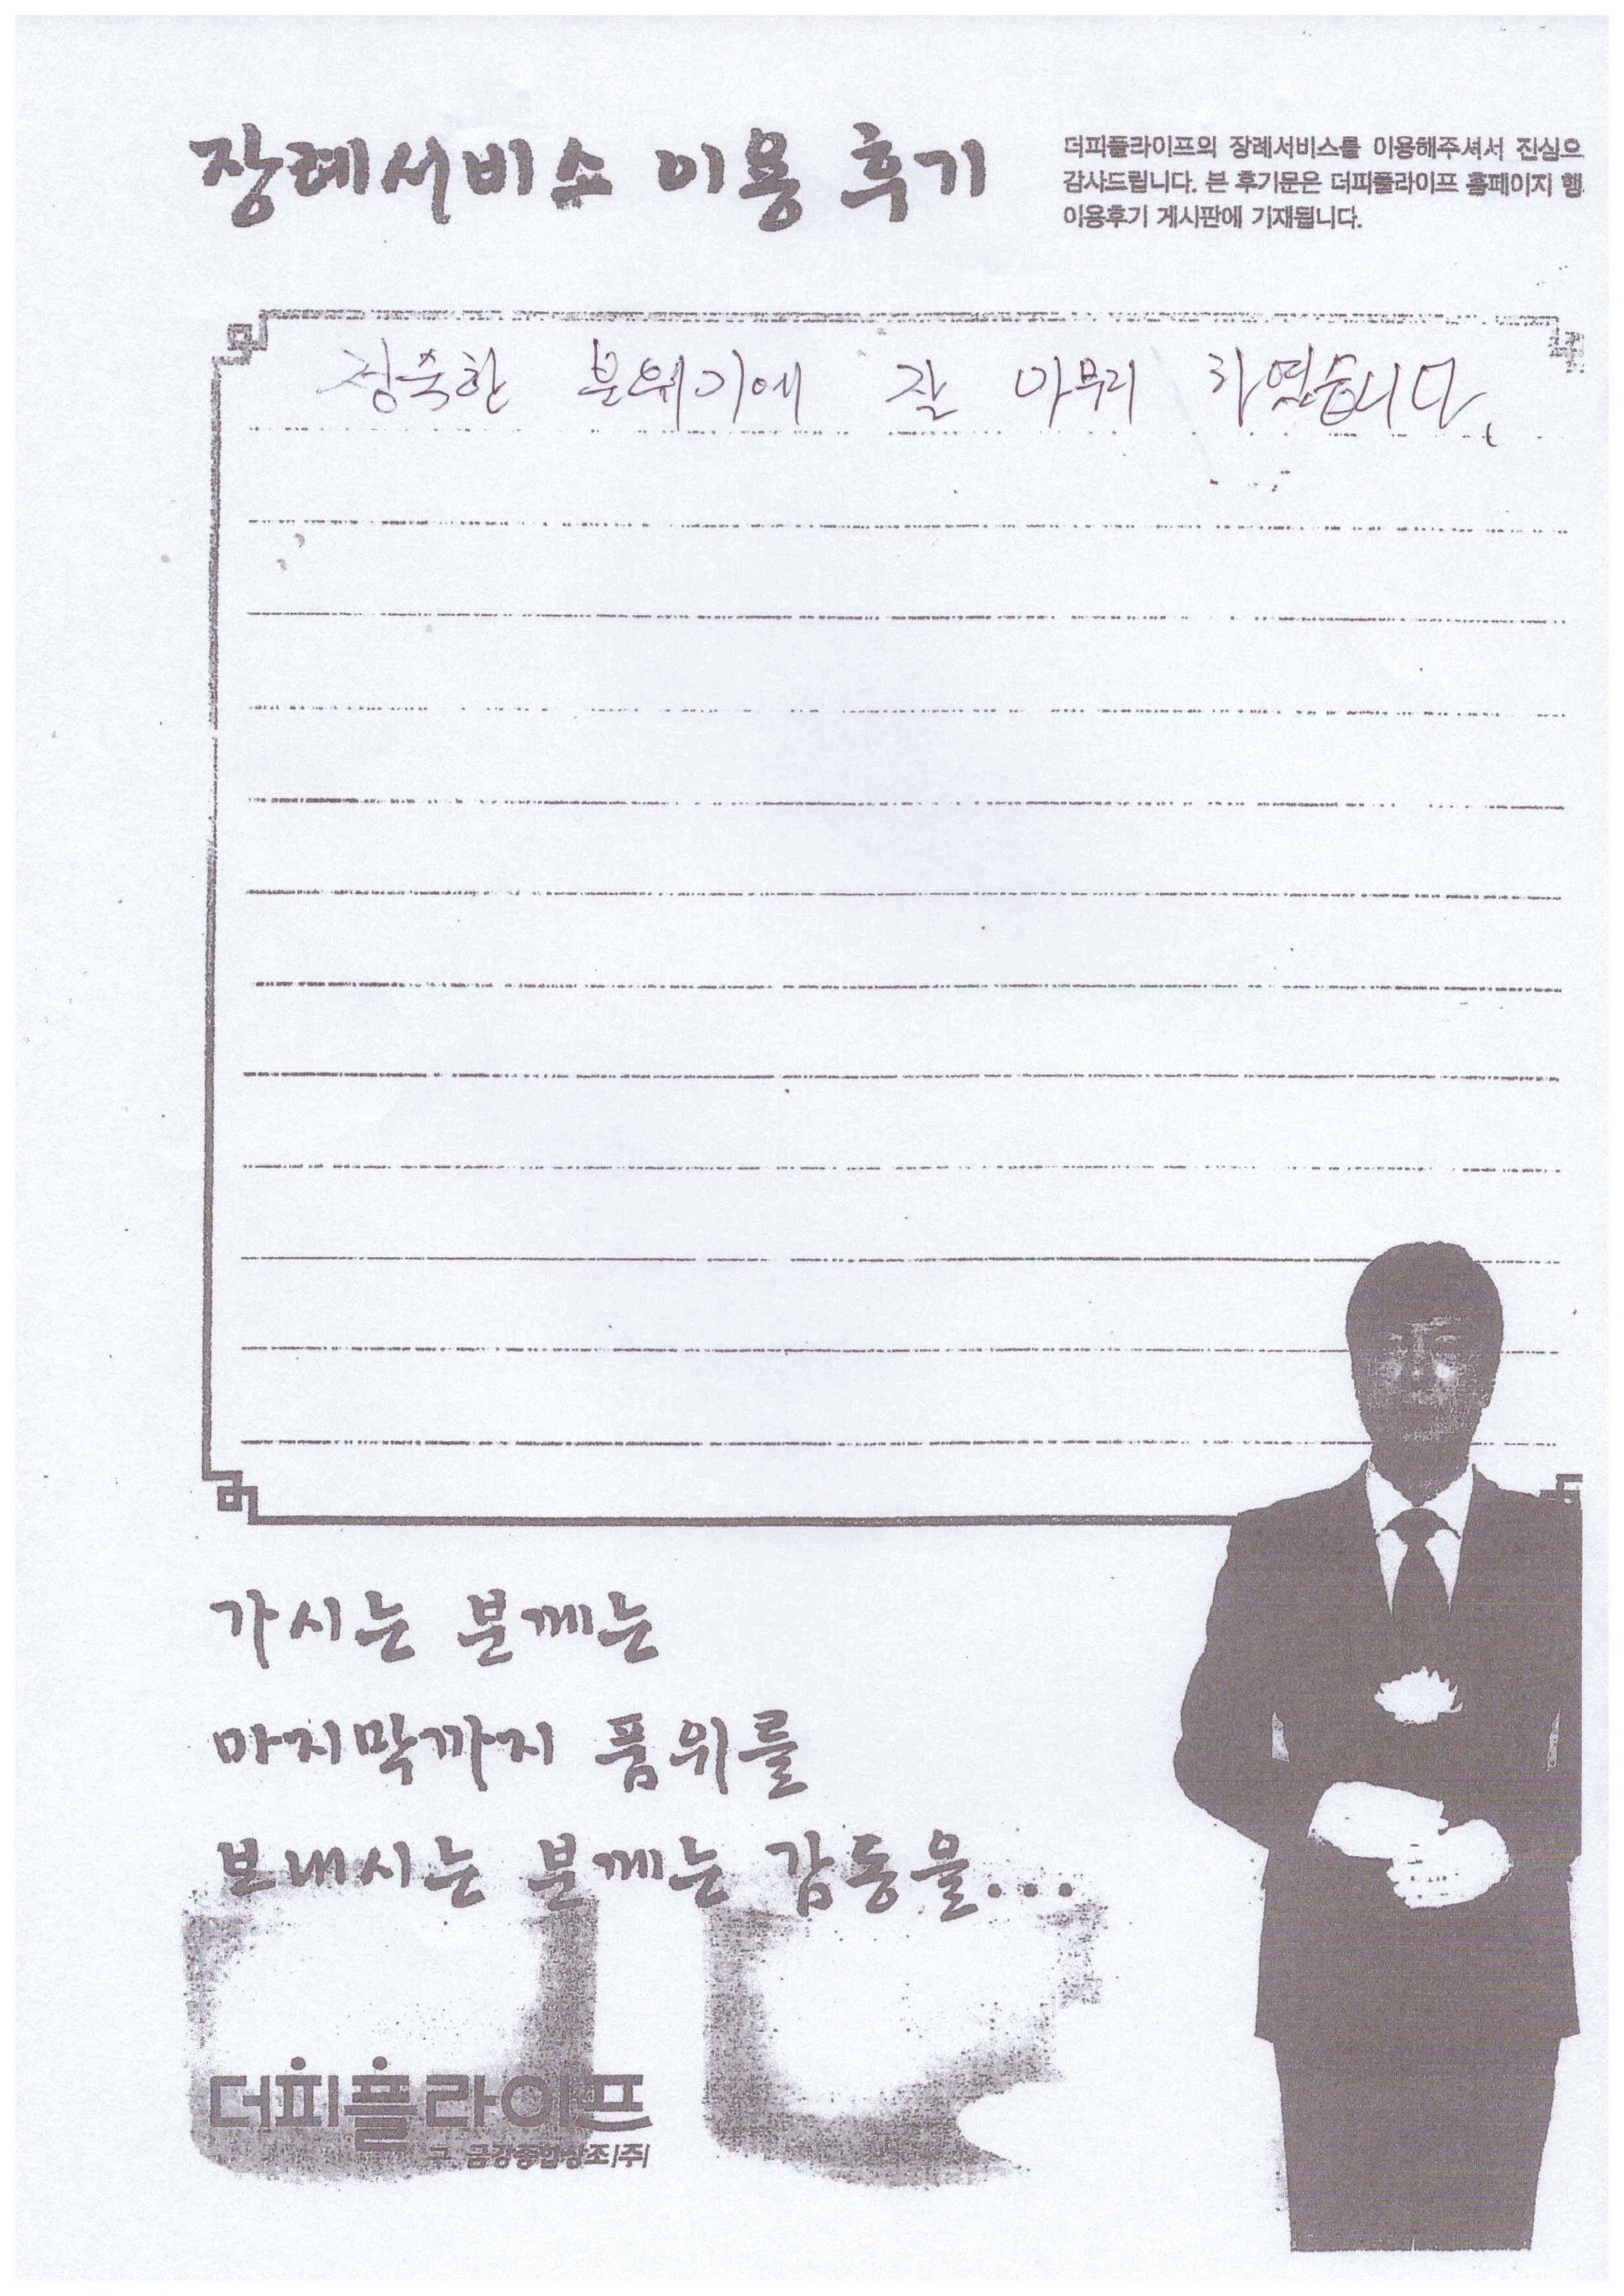 장례서비스 이용 후기
더피플라이프의 장례서비스를 이용해주셔서 진심으
감사드립니다. 본 후기문은 더피플라이프 홈페이지 행
이용후기 게시판에 기재됩니다.
정숙한 분위기에 잘 마무리 하였습니다.
가시는 분께는
마지막까지 품위를
보내시는 분께는 감동을...
더피플라이프
구 금강종합상조(주)